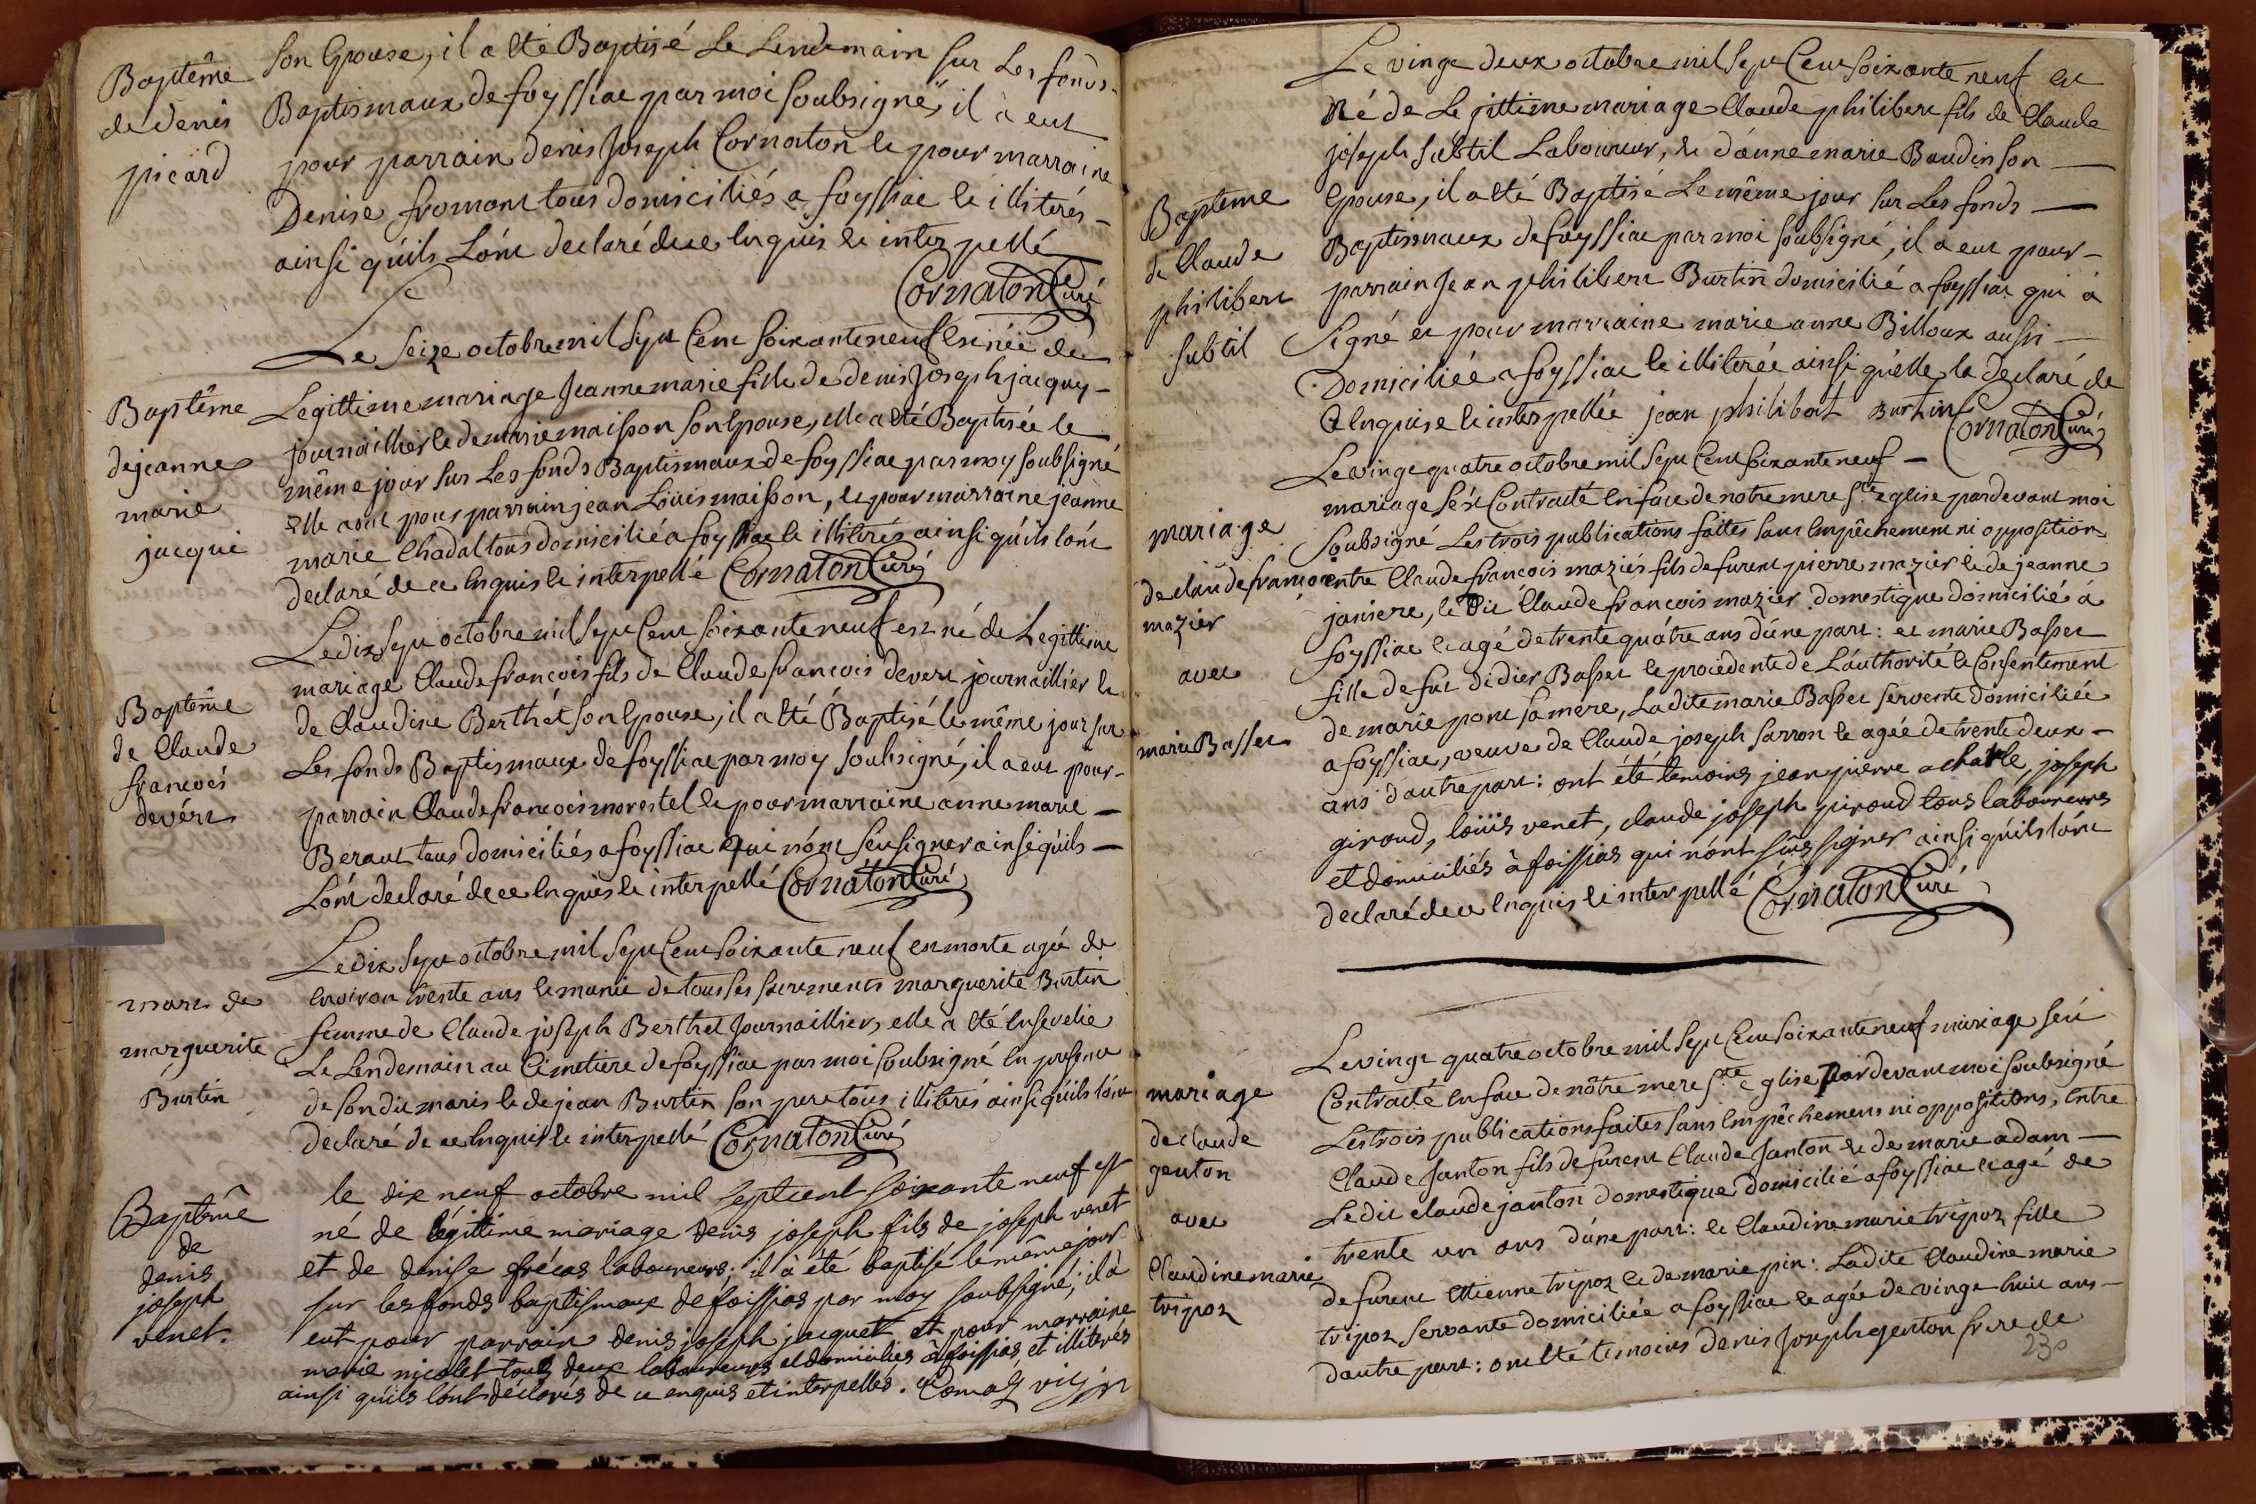 Baptême
de denis
picard
son Epouse, il a êté Baptisé Le Lendemain sur Les fonds-
Baptismaux de foyssiac par moi soubsigné, il à eut
pour parrain denis Joseph Cornaton et pour marraine
Denise fromont tous domiciliés a foyssiac et illiterés-
ainsi qu'ils L'ônt declaré de ce Enquis et interpellé
Cornaton Curé
Baptême
de jeanne
marie
jacqui
Le seize octobre mil sept Cent soixante neuf Est née de
Legittime mariage Jeanne marie fille de denis Joseph jacquy-
journaillier et de marie maisson son Epouse, elle a êté Baptisée le
même jour sur Les fonds Baptismaux de foyssiac par moy soubsigné
elle a eut pour parrain jean Loüis maisson, et pour marraine jeanne
marie Chadal tous domicilié a foyssiac et illiterés ainsi qu'ils l'ônt
declaré de ce Enquis et interpellé Cornaton Curé
Baptême
de Claude
francois
devért
Le dix sept octobre mil sept Cent soixante neuf est né de Legittime
mariage Claude francois fils de Claude francois devert journaillier et
de Claudine Berthet son Epouse, il a êté Baptisé le même jour sur
Les fonds Baptismaux de foyssiac par moy soubsigné, il a eut pour-
parrain Claude francois morestel et pour marraine anne marie -
Beraut tous domiciliés a foyssiac qui n'ont sçu signer ainsi qu'ils -
L'ônt declaré de ce Enquis et interpellé Cornaton Curé
mort de
marguerite
Burtin
Le dix sept octobre mil sept Cent soixante neuf est morte agée de
Environ trente ans et munie de tous ses sacrements marguerite Burtin
femme de Claude joseph Berthet Journaillier, elle a êté Ensevelie
Le Lendemain au Cimetiere de foyssiac par moi soubsigné En presence
de son dit maris et de jean Burtin son pere tous illiterés ainsi qu'ils l'ônt
declaré de ce Enquis et interpellé Cornaton Curé
Baptême
de
denis
joseph
venet.
le dix neuf octobre mil sept cent soixante neuf est
né de légittime mariage denis joseph fils de joseph venet
et de denise frécas laboureurs; il à été baptisé le même jour
sur les fonds baptismaux de foissias par moy soubsigné; il à
eut pour parrain denis joseph jacquet et pour marraine
marie nicolet tous deux laboureurs et domiciliés à foissias, et illiterés
ainsi qu'ils l'ont déclarés de ce enquis et interpellés.
Baptême
de Claude
philibert
subtil
Le vingt deux octobre mil sept Cent soixante neuf est
Né de Legittime mariage Claude philibert fils de Claude
joseph subtil Laboureur, et d'anne marie Baudin son
Epouse, il a êté Baptisé Le même jour sur Les fonds
Baptismaux de foyssiac par moi soubsigné, il a eut pour-
parrain Jean philibert Burtin domicilié a foyssiac qui à
signé et pour marraine marie anne Billoux aussi
Domiciliée a foyssiac et illiterée ainsi qu'elle la declaré de
Ce Enquise et interpellée jean philibert Burtin
Cornaton Curé
mariage
de claude francois
mazier
avec
marie Basset
Le vingt quatre octobre mil sept Cent soixante neuf -
mariage s'est Contracté En face de notre mere Ste eglise par devant moi
soubsigné Les trois publications faites sans Empêchement ni opposition
entre Claude francois maziér fils de furent pierre mazier et de jeanne
janiere, le Dit Claude francois mazier domestique domicilié à
foyssiac et agé de trente quatre ans d'une part: et marie Basset
fille de fut didier Basset et procedente de L'authorité et Consentement
de marie pont sa mere, Ladite marie Basset servente domiciliée
a foyssiac, veuve de Claude joseph sarron et agée de trente deux -
ans d'autre part: ont été temoins jean pierre achatle, joseph
giroud, loüis venet, claude joseph piroud tous laboureurs
et domiciliés à foissias qui n'ont sçus signer ainsi qu'ils l'ônt
declaré de ce Enquis et interpellé Cornaton Curé
mariage
de claude
genton
avec
Claudine marie
tripoz
Le vingt quatre octobre mil sept Cent soixante neuf mariage s'est
Contracté En face de nôtre mere Ste eglise Par devant moi soubsigné
Les trois publications faites sans Empêchemens ni oppositions, Entre
Claude Janton fils de furent Claude Janton et de marie adam
Le dit claude janton domestique domicilié a foyssiac et agé de
trente un ans d'une part: et Claudine marie tripoz fille
de furent Etienne tripoz et de marie pin: Ladite Claudine marie
tripoz servante domiciliée a foyssiac et agée de vingt huit ans -
d'autre part: ont êté temoins denis Joseph genton frere de
230